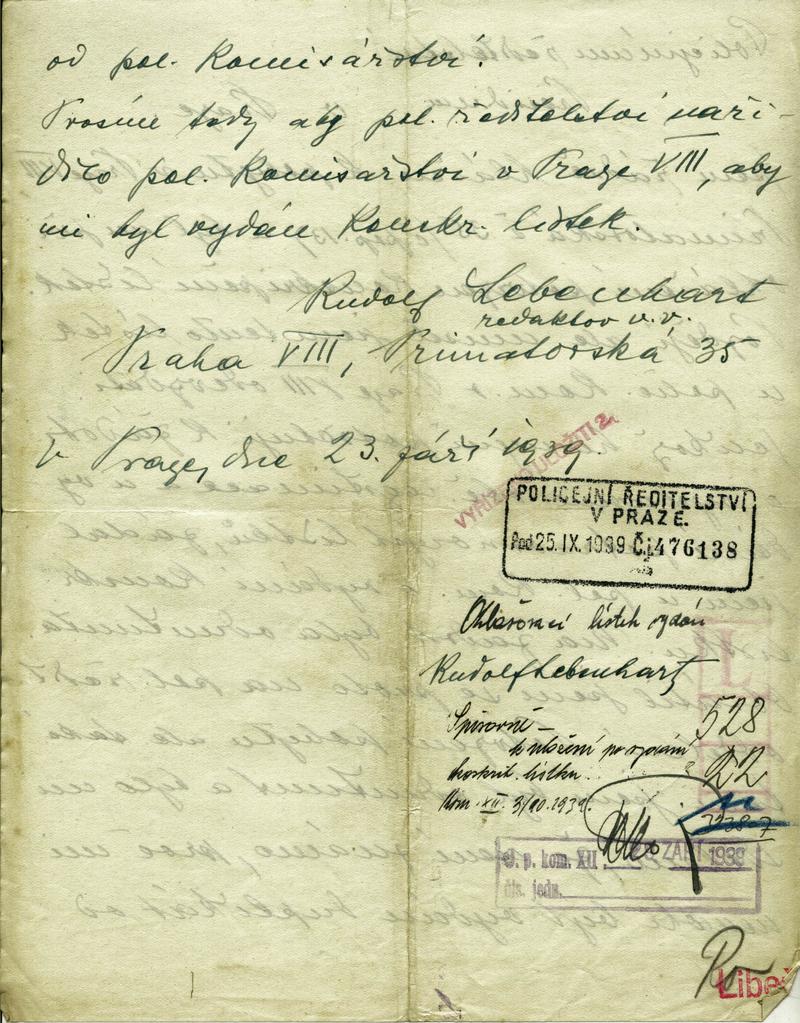 od pol. Komisářství.
Prosím tedy aby pol. ředitelství naří-
dilo pol. Komisařství v Praze VIII, aby
mi byl vydán Konskr. lístek.
Rudolf Lebenhart
redaktor v.v.
Praha VIII, Primátorská 35
V Praze, dne 23. září 1939.
POLICEJNÍ ŘEDITELSTVÍ
V PRAZE.
Pod 25. IX. 1939 Č.j. 476138
Ohlašovací lístek vydán
Rudolf Lebenhart
528
k uložení po vydání 22
konskr. lístku.
Kom. XII. 3/10. 1939.
p. kom. XII. ZÁŘÍ 1939
čís. jedn.
Libeň